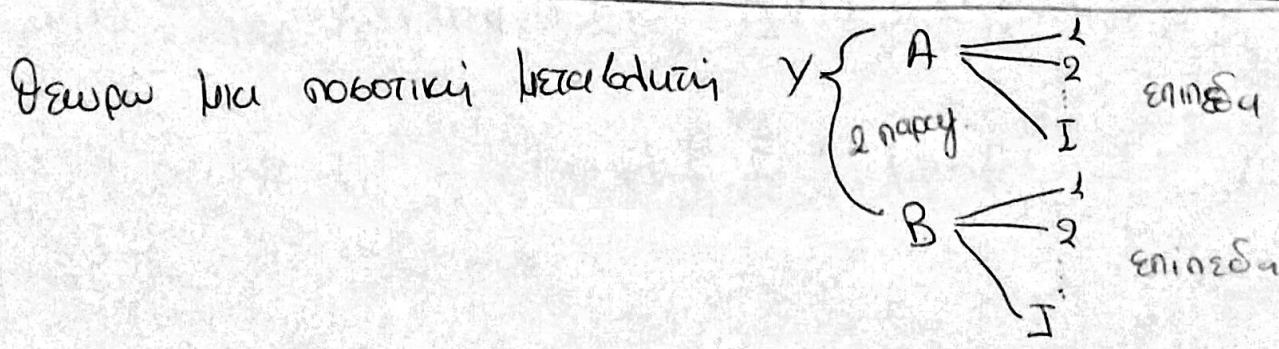 Θεωρω μια ποσοτικη μεταβλητη Υ
2 παραγ.
Α
1
2
⋮
I
επιπεδα
Β
1
2
⋮
J
επιπεδα